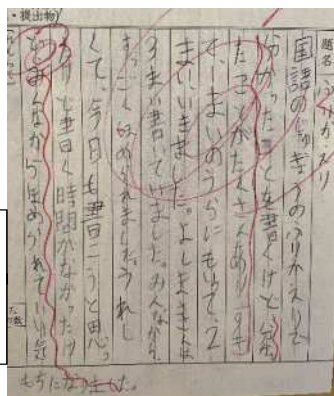 ・提出物)
題名
ふりかえり
国語のじゅぎょうのふりかえりで
分かったことを書くけど、
たことがたくさんありすぎ
て、まいのうらにもいって、2
まい、いきました。よしまさきくんは
3まい書いていました。みんなから、
すっごくほめられました。うれし
くて、今日も書こうと思っ
けど書く時間がなかったけ
どみんなからほめられていい気
もちになりました。